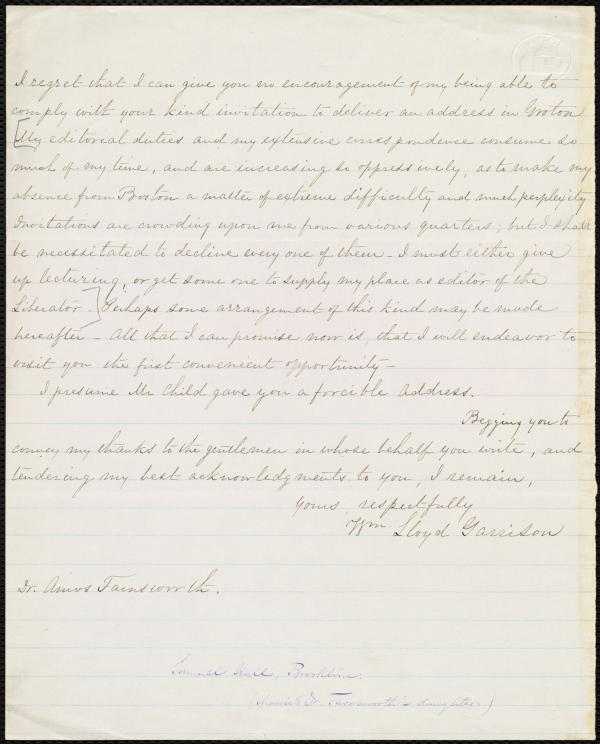 I regret that I can give you no encouragement of my being able to
comply with your kind invitation to deliver an address in Groton
[My editorial duties and my extensive correspondence consume so
much of my time, and are increasing so oppressively, as to make my
absence from Boston a matter of extreme difficulty and much perplexity
Invitations are crowding upon me from various quarters; but I shall
be necessitated to decline every one of them – I must either give
up lecturing, or get some one to supply my place as editor of the
Liberator.} Perhaps some arrangement of this kind may be made
hereafter – All that I can promise now is, that I will endeavor to
visit you the first convenient opportunity –
I presume Mr Child gave you a forcible Address.
Begging you to
convey my thanks to the gentlemen in whose behalf you write, and
tendering my best acknowledgments to you, I remain,
Yours, respectfully
Wm. Lloyd Garrison
Dr. Amos Farnsworth.
Samuel Hall, Brookline.
(married Dr. Farnsworth's daughter)